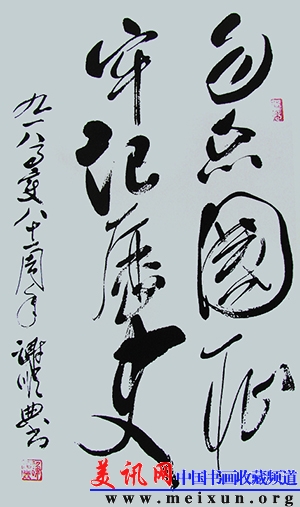 勿忘國耻
牢记歷史
九一八事变八十一周年 謝順典书
美讯网 中国书画收藏频道
www.meixun.org